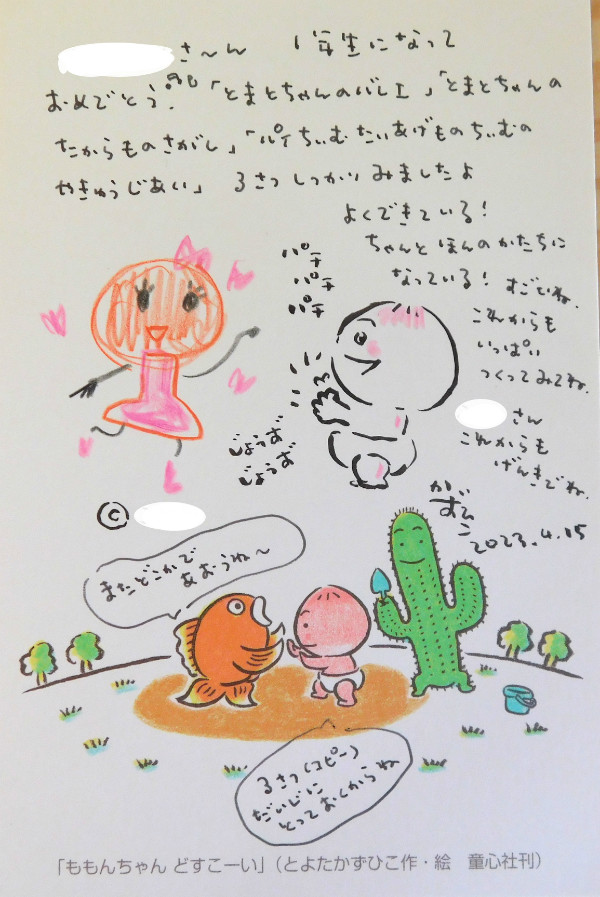 さ〜ん 1年生になって
おめでとう!「とまとちゃんのバレエ」「とまとちゃんの
たからものさがし」「パイちぃむたいあげものちぃむの
やきゅうじあい」 3さつしっかりみましたよ
よくできている!
ちゃんとほんのかたちに
なっている!すごいね.
これからも
いっぱい
つくってみてね.
パチ
パチ
パチ
じょうず
じょうず
さん
これからも
げんきでね.
かずひこ
2023.4.15
©
またどこかで
あおうね〜
3さつ(コピー)
だいじに
とっておくからね
「ももんちゃん どすこーい」(とよたかずひこ作・絵 童心社刊)